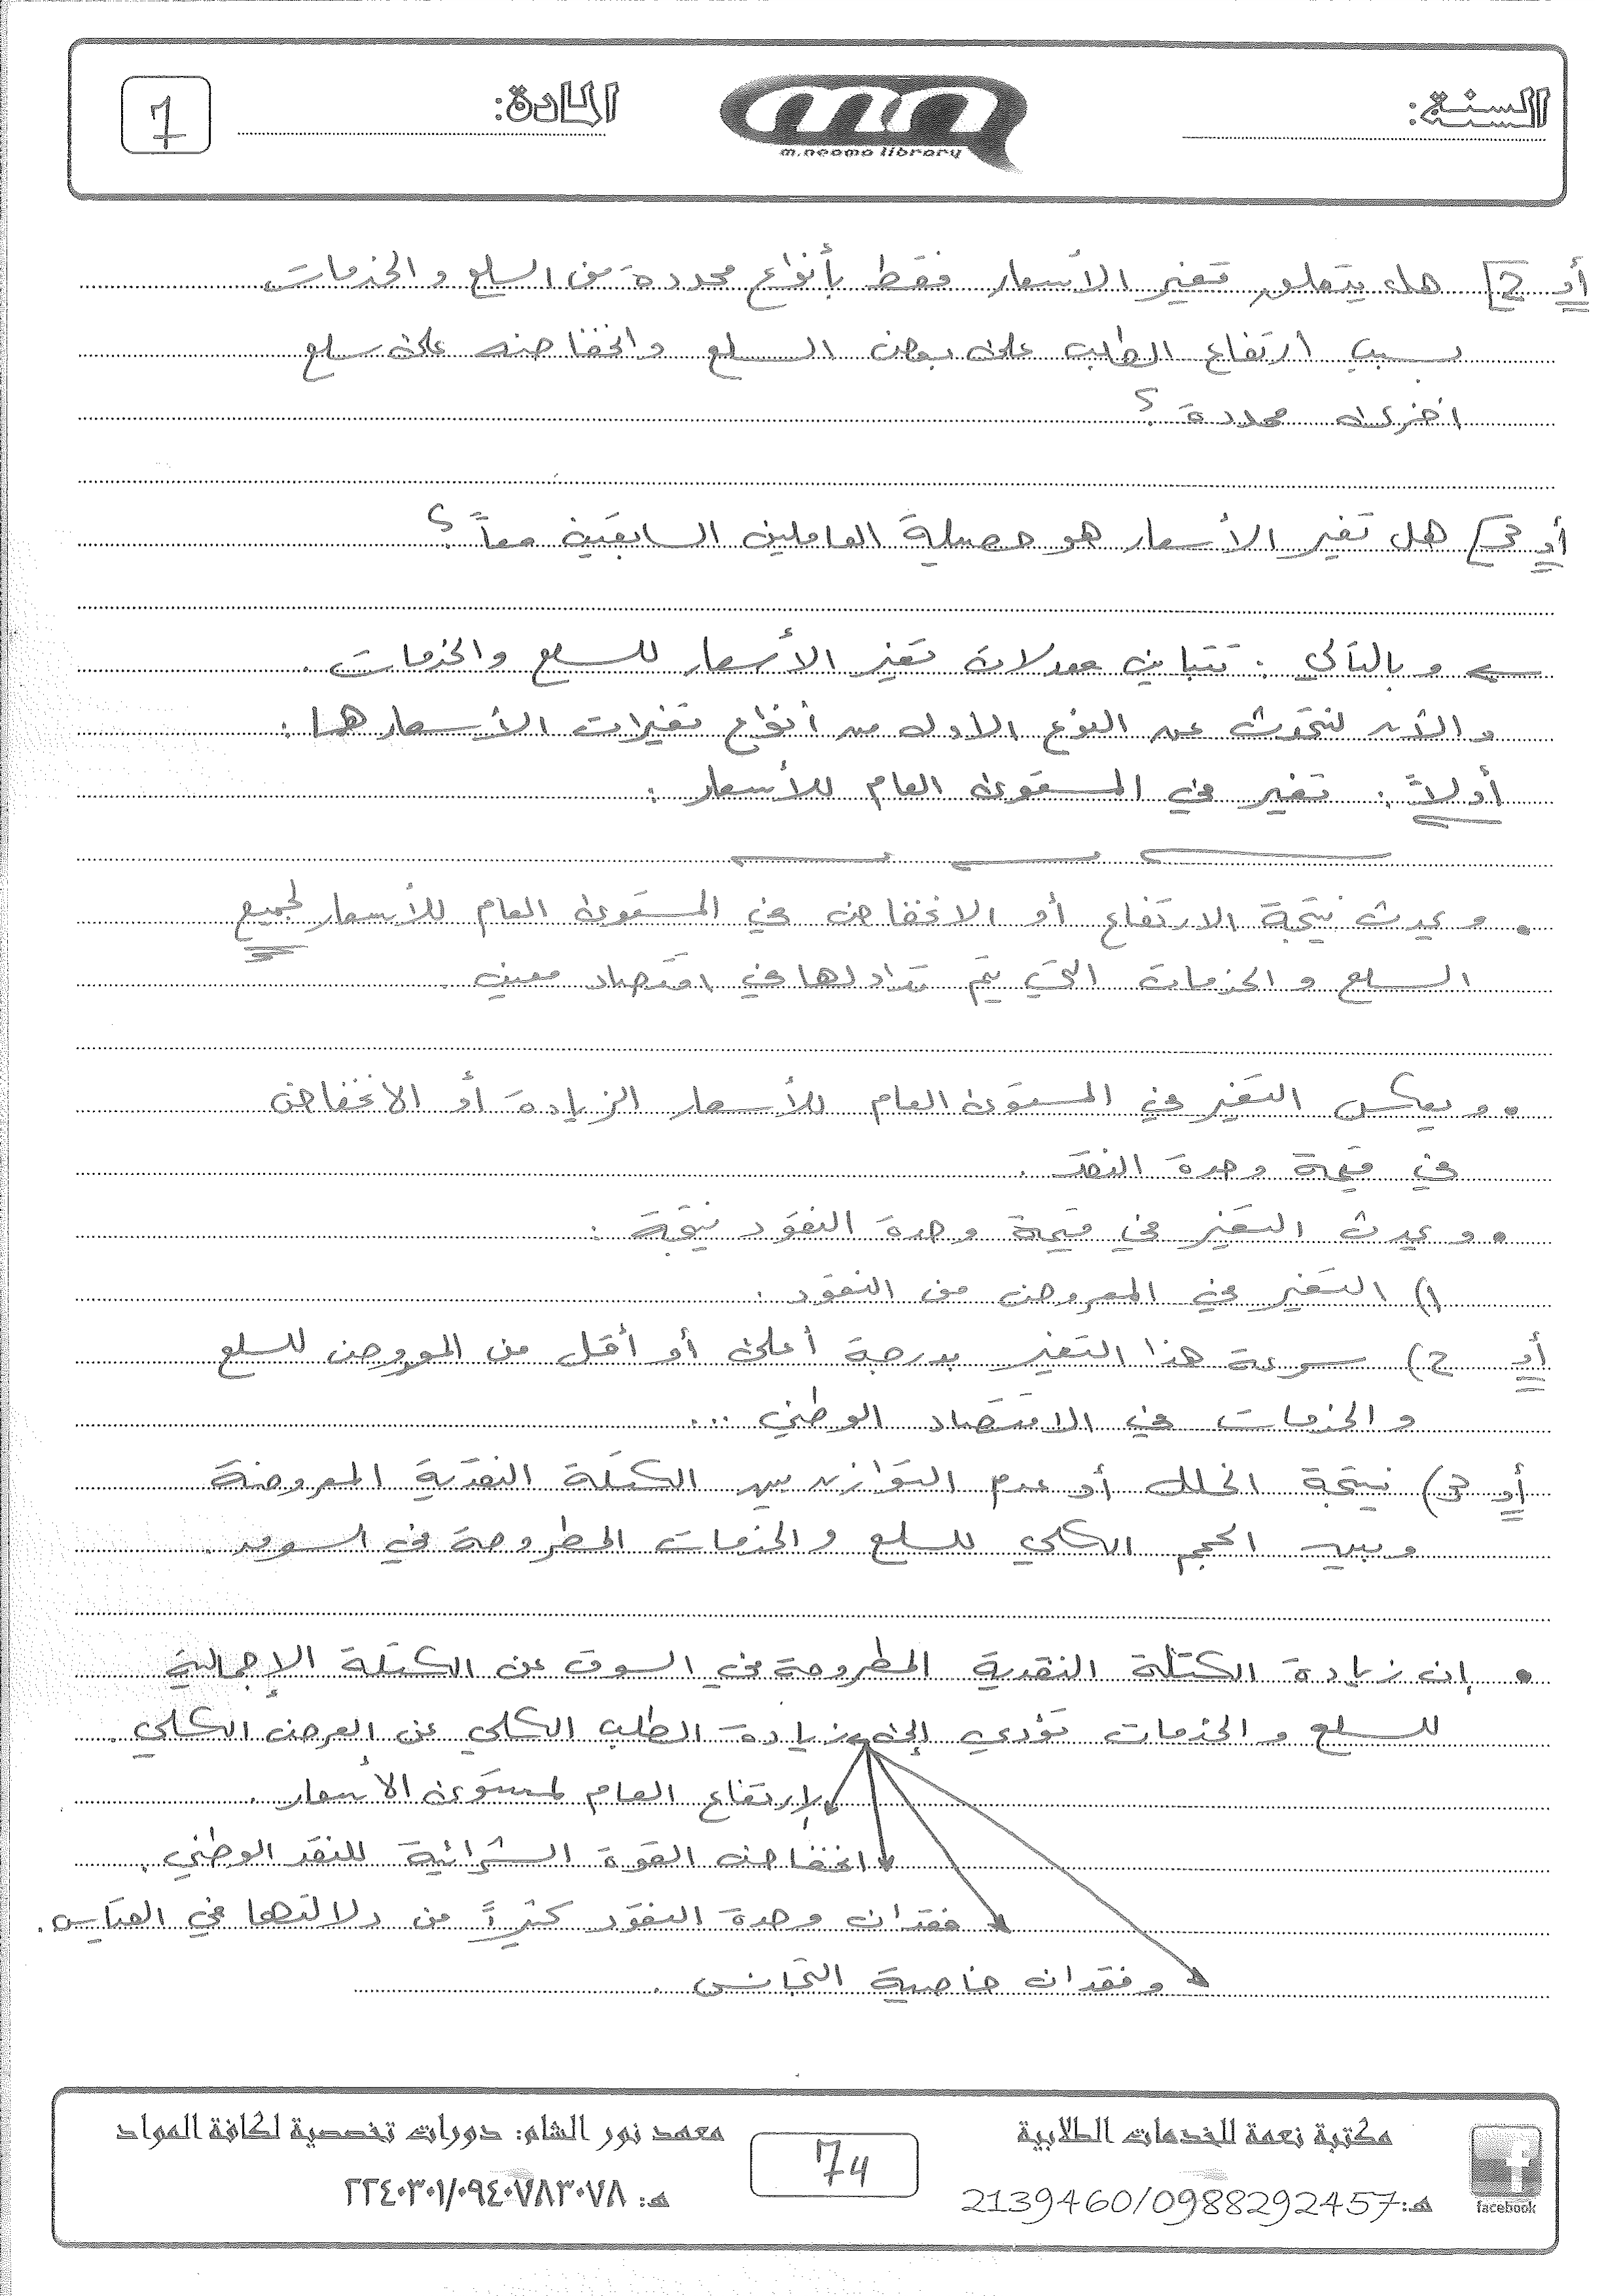 السنة:
m.neama library
المادة:
7
أو 2] هل يتعلق تغير الأسعار فقط بأنواع محددة من السلع والخدمات
بسبب ارتفاع الطلب على بعض السلع وانخفاضه على سلع
اخرى محددة ؟
أو 3] هل تغير الأسعار هو حصيلة العاملين السابقين معاً ؟
← وبالتالي : تتباين معدلات تغير الأسعار للسلع والخدمات .
والآن لنتحدث عن النوع الاول من أنواع تغيرات الأسعار هما :
أولاً : تغير في المستوى العام للأسعار :
• ويحدث نتيجة الارتفاع أو الانخفاض في المستوى العام للأسعار لجميع
السلع والخدمات التي يتم تداولها في اقتصاد معين .
• ويعكس التغير في المستوى العام للأسعار الزيادة أو الانخفاض
في قيمة وحدة النقد .
• ويحدث التغير في قيمة وحدة النقود نتيجة :
1) التغير في المعروض من النقود .
أو 2) سرعة هذا التغير بدرجة أعلى أو أقل من المعروض للسلع
والخدمات في الاقتصاد الوطني ...
أو 3) نتيجة الخلل أو عدم التوازن بين الكتلة النقدية المعروضة
وبين الحجم الكلي للسلع والخدمات المطروحة في السوق .
• إن زيادة الكتلة النقدية المطروحة في السوق عن الكتلة الإجمالية
للسلع والخدمات تؤدي إلى زيادة الطلب الكلي عن العرض الكلي .
لإرتفاع العام لمستوى الأسعار .
انخفاض القوة الشرائية للنقد الوطني .
فقدان وحدة النقود كثيراً من دلالتها في القياس .
وفقدان خاصية التجانس .
مكتبة نعمة للخدمات الطلابية
هـ: 2139460/0988292457
facebook
74
معهد نور الشام: دورات تخصصية لكافة المواد
هـ: ٢٢٤٠٣٠١/٠٩٤٠٧٨٣٠٧٨